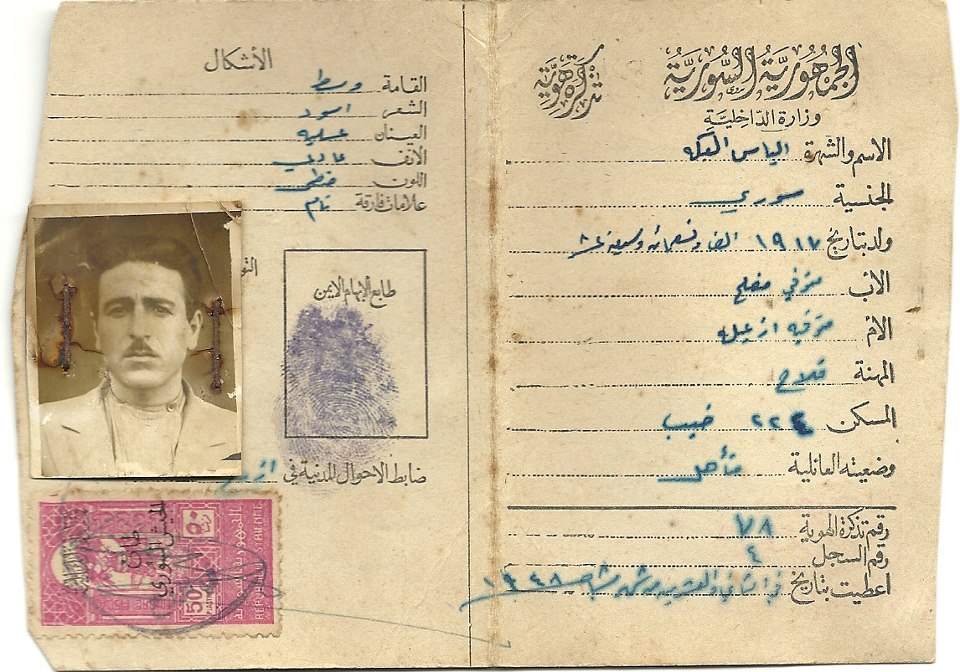 الجمهورية السورية
تذكرة هوية
وزارة الداخلية
الاسم والشهرة الياس
الجنسية سوري
ولد بتاريخ ١٩١٧ الف وتسعمائة وسبعة عشر
الأب متوفي مفلح
الأم متوفيه
المهنة فلاح
المسكن ٢٢٤ خبب
وضعيته العائلية متأهل
رقم تذكرة الهوية ٧٨
رقم السجل ٤
اعطيت بتاريخ ١٩٤٨
الأشكال
القامة وسط
الشعر اسود
العينان عسليه
الأنف عادي
اللون حنطي
علامات فارقة تام
طابع الإبهام الأيمن
ضابط الاحوال المدنية في ازرع
طابع
الجيش السوري
50